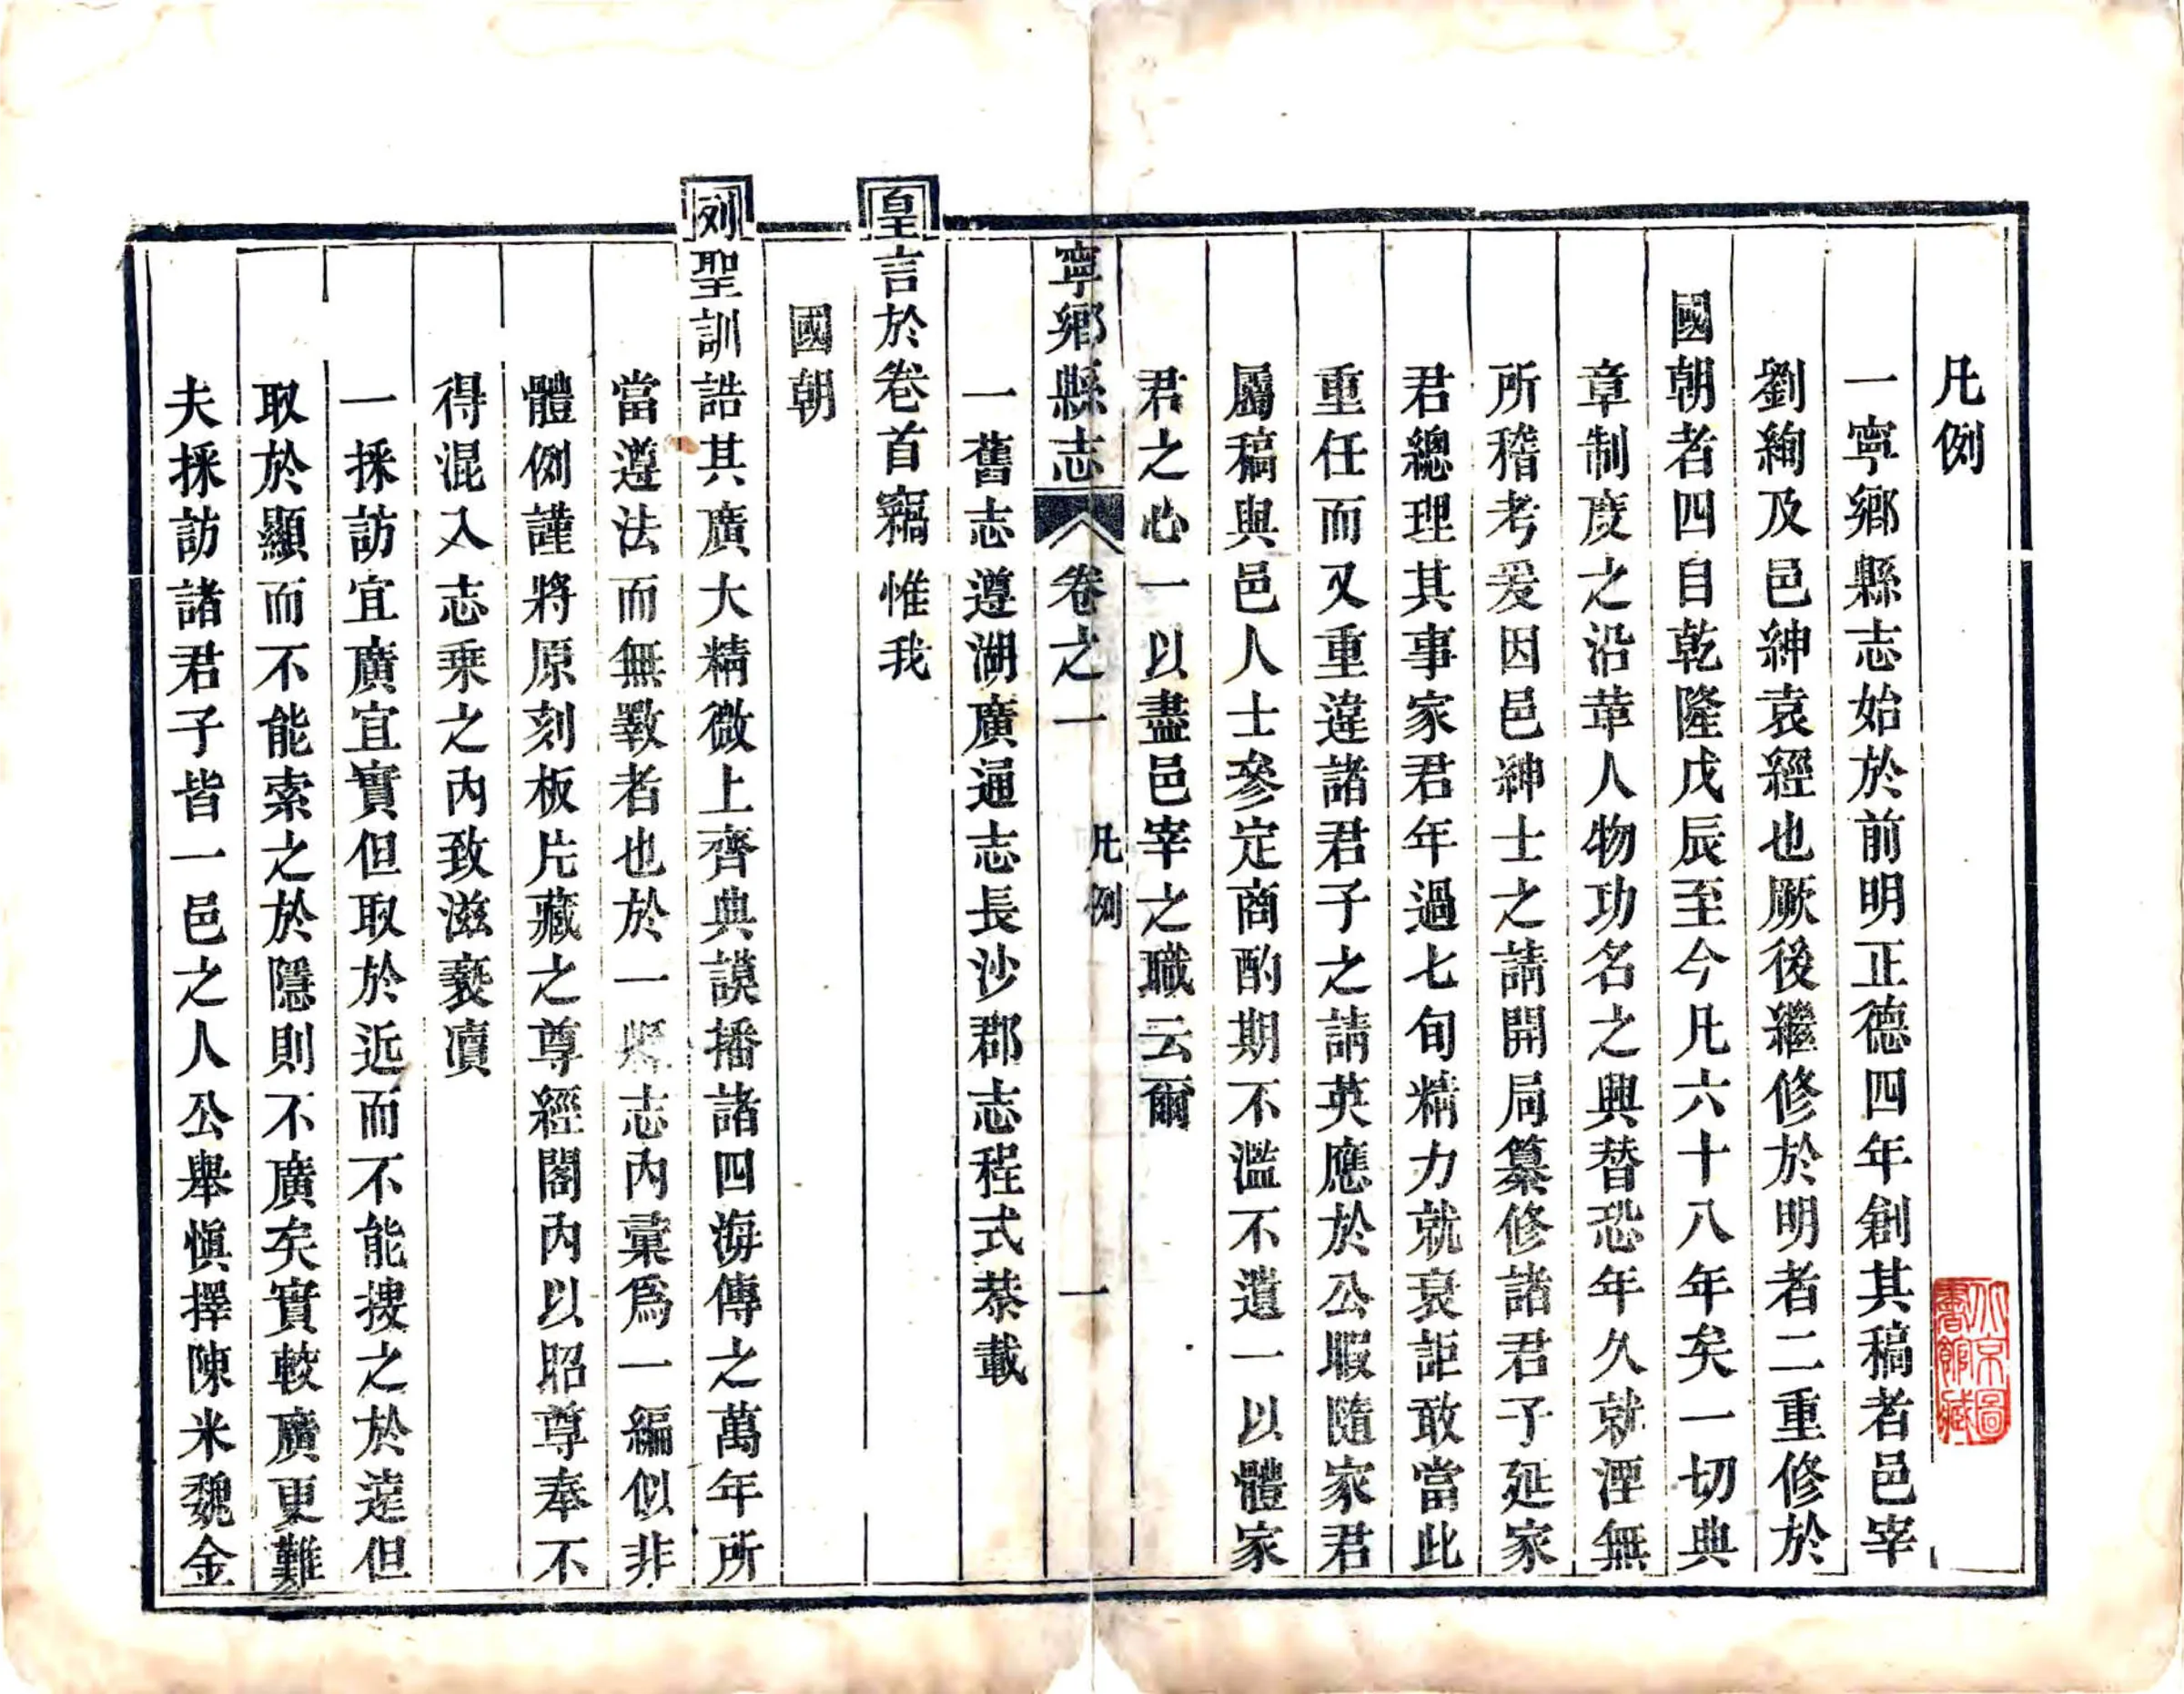 凡例
一寧鄉縣志始於前明正德四年創其稿者邑宰
劉絢及邑紳袁經也厥後繼修於明者二重修於
國朝者四自乾隆戊辰至今凡六十八年矣一切典
章制度之沿革人物功名之興替恐年久就湮無
所稽考爰因邑紳士之請開局纂修諸君子延家
君總理其事家君年過七旬精力就衰詎敢當此
重任而又重違諸君子之請英應於公暇隨家君
屬稿與邑人士參定商酌期不濫不遺一以體家
君之心一以盡邑宰之職云爾
寧鄉縣志 卷之一 凡例 一
一舊志遵湖廣通志長沙郡志程式恭載
皇言於卷首竊惟我
國朝
列聖訓誥其廣大精微上齊典謨播諸四海傳之萬年所
當遵法而無斁者也於一縣志內彙爲一編似非
體例謹將原刻板片藏之尊經閣內以昭尊奉不
得混入志乘之內致滋褻瀆
一採訪宜廣宜實但取於近而不能搜之於遠但
取於顯而不能索之於隱則不廣矣實較廣更難
夫採訪諸君子皆一邑之人公舉愼擇陳米魏金
北京圖書館藏